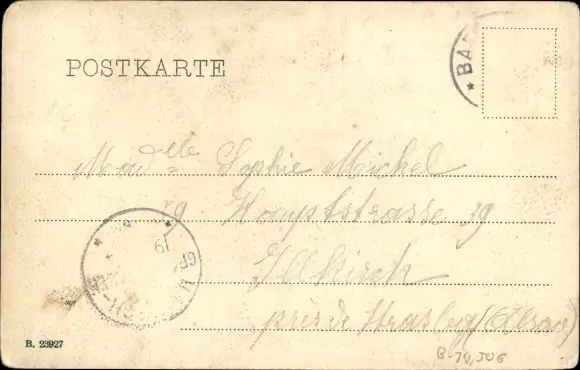 POSTKARTE
* BA
Madelle Sophie Michel
Hauptstrasse 39
Illkirch
près de Strasbg (Alsace)
B. 23927